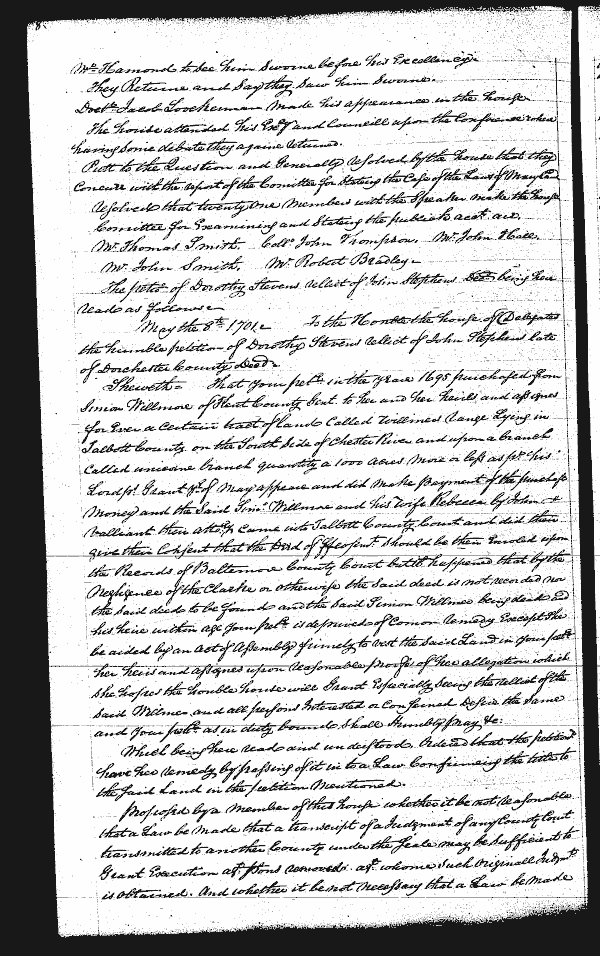 Mr. Hamond to See him Sworne before his Excellency.
They Returne and Say they Saw him Sworne.
Doctr. Jacob Loockerman Made his appearance in the house
The house attended his Exy. and Councill upon the Conference when
having Some debate they againe returned.
Putt to the Question and Generally resolved by the house that they
Concurr with the report of the Comittee for Stating the Case of the Laws of Maryland
Resolved that twenty One Members with the Speaker make the house
Comittee for Examining and Stating the publick acct. are.
Mr. Thomas Smith, Collo. John Thompson, Mr. John Hall,
Mr. John Smith, Mr. Robert Bradley.
The petn. of Dorothy Stevens relict of John Stephens Decd. being here
read as follows
May the 8th. 1701. To the Honble the house of Delegates
the humble petition of Dorothy Stevens relict of John Stephens late
of Dorchester County Decd.
Sheweth That Your petr. in the Year 1695 purchased from
Simon Willmore of Kent County Gent. to her and her heirs and assignes
for Ever a Certain tract of land Called Willmers range Lying in
Talbott County on the South Side of Chester River and upon a branch
Called unicorne branch quantity a 1000 acres more or less as pr. his
Lordsps. Grant thereof may appeare and did make payment of the purchase
Money and the Said Simo. Willmore and his wife Rebecca by John
Valliant their attory. Came into Talbott County Court and did then
give their Consent that the Deed of Feofemt. Should be then Enroled upon
the Records of Baltemore County Court but it happened that by the
Negligence of the Clarke or otherwise the Said deed is not recorded nor
the Said deed to be found and the Said Simon Willmer being dead and
his heire within age Your petr. is deprived of Comon remedy Except She
be aided by an act of Assembly firmely to vest the Said Land in Your petr.
her heirs and assignes upon reasonable proofs of her allegation which
She hopes the honble house will Grant Especially Seeing the rellict of the
Said Willmer and all persons Interested or Conserned Desire the Same
and Your petr. as in duty bound Shall Humbly pray &c:
Which being here read and understood. Ordered that the petitionr
have her remedy by passing of it into a Law Confirmeing the title to
the Said Land in the petition Mentioned.
Proposed by a Member of this house whether it be not reasonable
that a Law be made that a transcript of a Judgment of any County Court
transmitted to another County under the Seale may be Sufficient to
Grant Execution agt. psons removed agt. whome Such Originall Judgmt.
is obtained. And whether it be not necessary that a Law be made